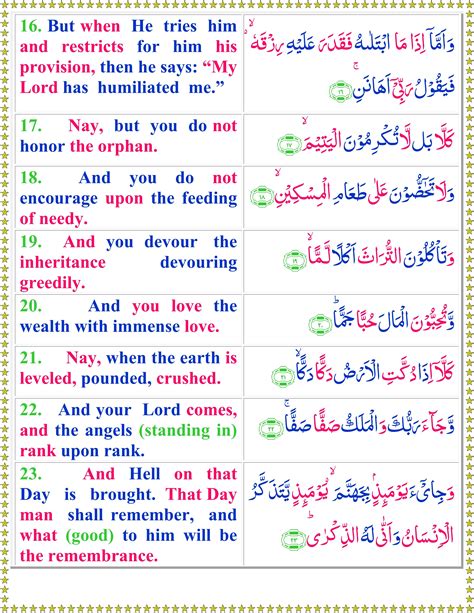 16. But when He tries him
and restricts for him his
provision, then he says: “My
Lord has humiliated me.”
وَاَمَّاۤ اِذَا مَا ابْتَلٰىهُ فَقَدَرَ عَلَيْهِ رِزْقَهٗ ۙ
فَيَقُوْلُ رَبِّىْۤ اَهَانَنِ ۚ ﴿۱۶﴾
17. Nay, but you do not
honor the orphan.
كَلَّا بَلْ لَّا تُكْرِمُوْنَ الْيَتِيْمَ ۙ ﴿۱۷﴾
18. And you do not
encourage upon the feeding
of needy.
وَلَا تَحٰٓضُّوْنَ عَلٰى طَعَامِ الْمِسْكِيْنِ ۙ ﴿۱۸﴾
19. And you devour the
inheritance devouring
greedily.
وَتَاْكُلُوْنَ التُّرَاثَ اَكْلًا لَّمًّا ۙ ﴿۱۹﴾
20. And you love the
wealth with immense love.
وَّتُحِبُّوْنَ الْمَالَ حُبًّا جَمًّا ؕ ﴿۲۰﴾
21. Nay, when the earth is
leveled, pounded, crushed.
كَلَّاۤ اِذَا دُكَّتِ الْاَرْضُ دَكًّا دَكًّا ۙ ﴿۲۱﴾
22. And your Lord comes,
and the angels (standing in)
rank upon rank.
وَّجَآءَ رَبُّكَ وَالْمَلَكُ صَفًّا صَفًّا ۚ ﴿۲۲﴾
23. And Hell on that
Day is brought. That Day
man shall remember, and
what (good) to him will be
the remembrance.
وَجِاىْٓءَ يَوْمَٮِٕذٍۢ بِجَهَنَّمَ ۙ يَوْمَٮِٕذٍ يَّتَذَكَّرُ
الْاِنْسَانُ وَاَنّٰى لَهُ الذِّكْرٰى ؕ ﴿۲۳﴾